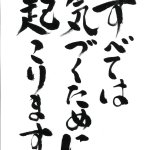 すべては
気づくために
起こります